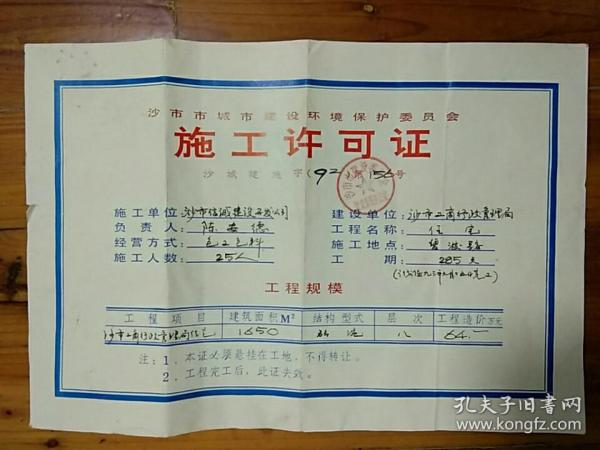 沙市市城市建设环境保护委员会
施工许可证
沙城建施字(92 第156号
施工单位:沙市信诚建设开发公司
建设单位:沙市工商行政管理局
负责人:陈孝德
工程名称:住宅
经营方式:包工包料
施工地点:
施工人数:25人
工期:285天
工程规模
工程项目 建筑面积M² 结构型式 层次 工程造价万元
沙市工商行政管理局住宅 1650 砖混 八 64.—
注:1、本证必须悬挂在工地,不得转让。
2、工程完工后,此证失效。
孔夫子旧书网
kongfz.com